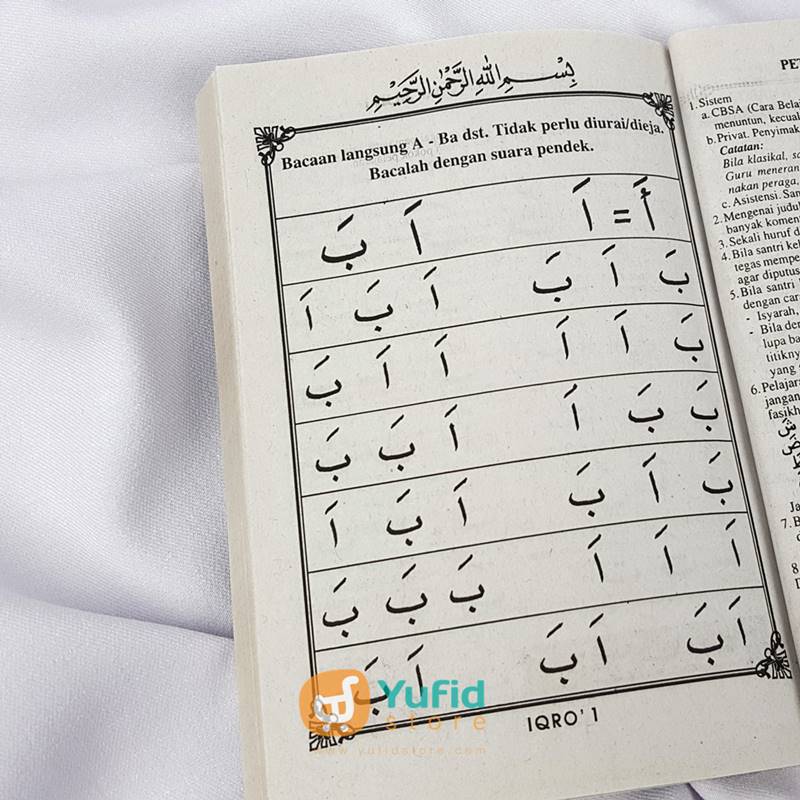 بِسْمِ اللهِ الرَّحْمٰنِ الرَّحِيْمِ
Bacaan langsung A - Ba dst. Tidak perlu diurai/dieja.
Bacalah dengan suara pendek.
أَ = اَ اَ بَ
بَ اَ بَ اَ بَ اَ
بَ اَ اَ اَ اَ بَ
بَ بَ اَ اَ بَ بَ
بَ اَ بَ اَ بَ اَ
اَ اَ اَ بَ بَ بَ
اَ بَ اَ بَ اَ بَ
IQRO' 1
Yufid
store
www.yufidstore.com
PET
1. Sistem
a. CBSA (Cara Bela
menuntun, kecual
b. Privat. Penyimak
Catatan:
Bila klasikal, sa
Guru meneran
nakan peraga,
c. Asistensi. San
2. Mengenai judul
banyak komen
3. Sekali huruf d
4. Bila santri kel
tegas mempe
agar diputus
5. Bila santri
dengan car
- Isyarah,
- Bila de
lupa ba
titikny
yang
6. Pelajara
jangan
fasikh
Ja
7. B
8